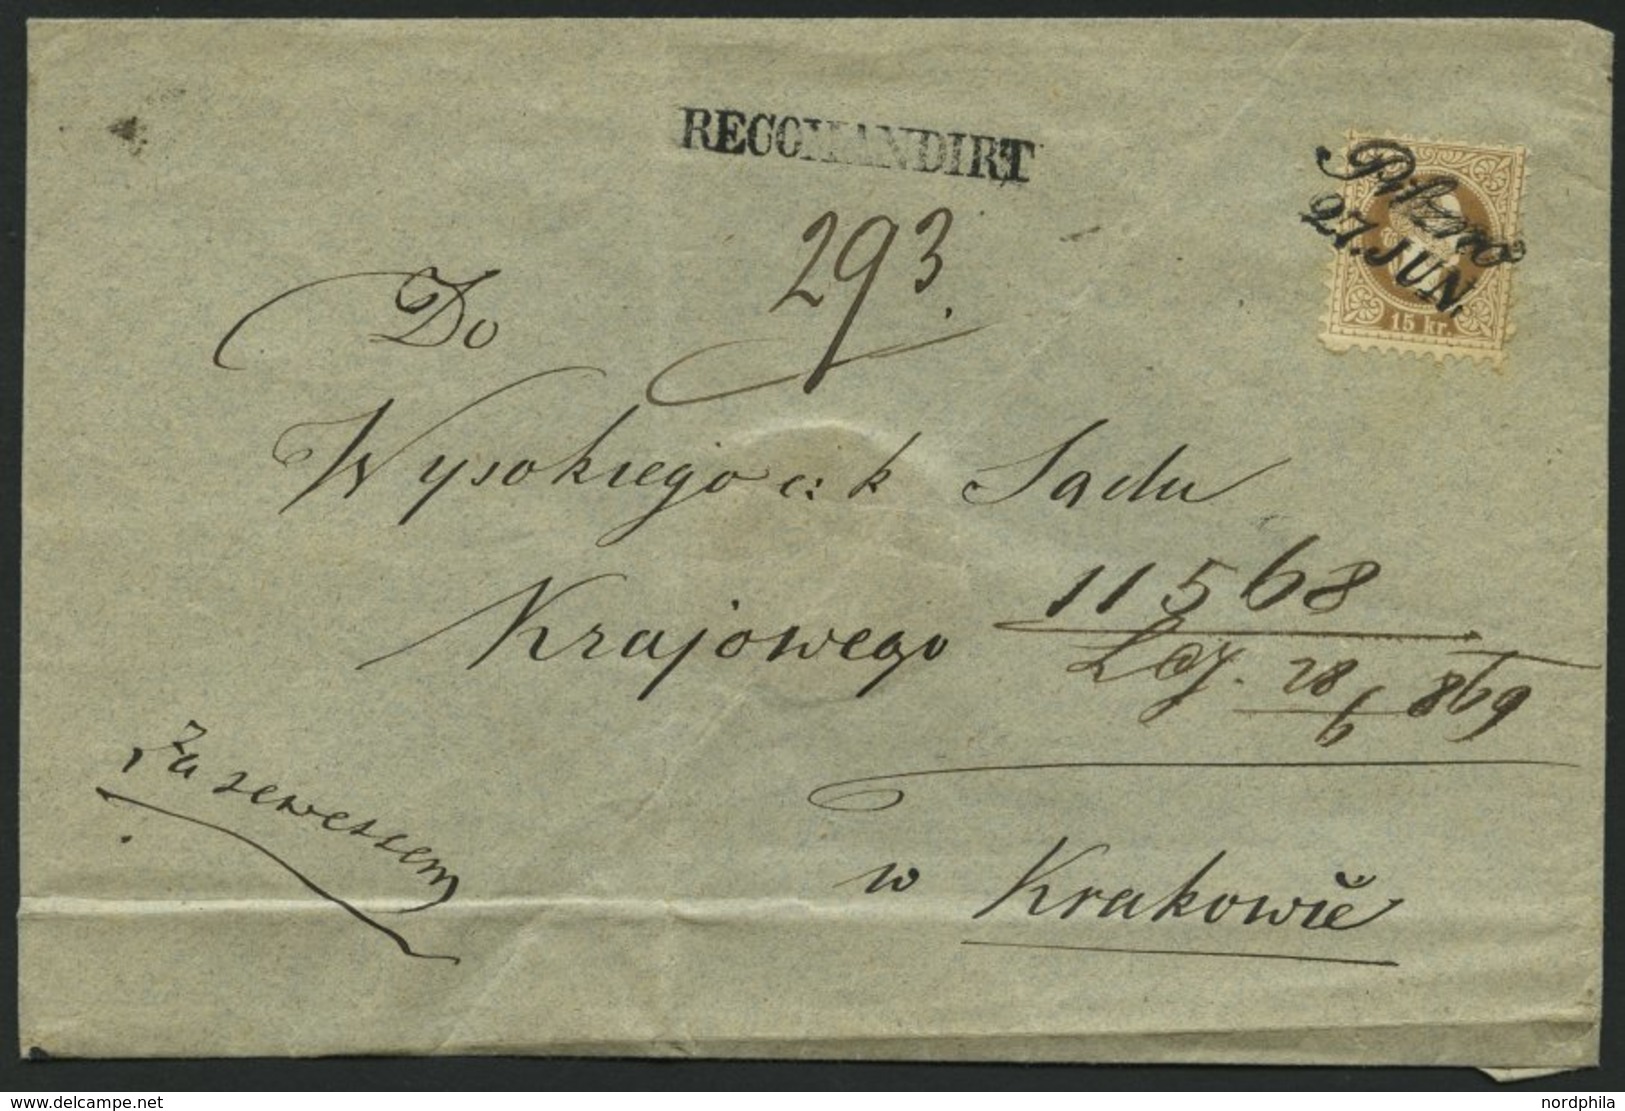 RECOMANDIRT
Pilzno
27. JUN.
15 kr.
293.
Do
Wysokiego c: k Sądu
Krajowego
11568
28/6 869
Za rewersem
w Krakowie
delcampe.net
nordphila